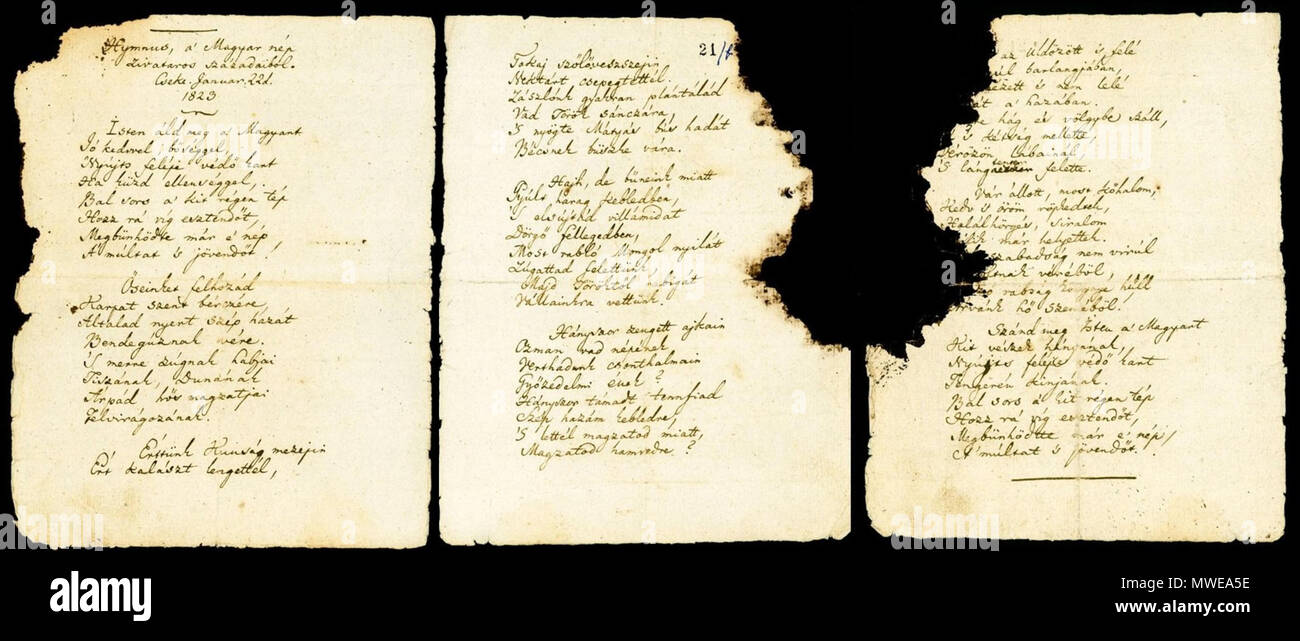 Hymnus, a' Magyar nép
Zivataros századaiból.
Cseke. Januar. 22d.
1823
Isten áld meg a' Magyart
Jó kedvvel, bőséggel,
Nyújts feléje védő kart
Ha küzd ellenséggel,
Bal sors a' kit régen tép
Hozz rá víg esztendőt,
Megbűnhődte már e' nép
A' múltat 's jövendőt!
Őseinket felhozád
Kárpát szent bérczére,
Általad nyert szép hazát
Bendegúznak vére.
'S merre zúgnak habjai
Tiszának, Dunának
Árpád hős magzatjai
Felvirágozának.
Értünk Kunság mezejin
Ért kalászt lengettél,
21/f
Tokaj szőlővesszejin
Nektárt csepegtettél.
Zászlónk gyakran plántálád
Vad Török sánczára,
'S nyögte Mátyás bús hadát
Bécsnek büszke vára.
Hajh, de bűneink miatt
Gyúlt harag kebledben,
'S elsújtád villámidat
Dörgő fellegedben,
Most rabló Mongol nyilát
Zúgattad felettünk,
Majd Töröktől rabigát
Vállainkra vettünk.
Hányszor zengett ajkain
Ozman vad népének
Vert hadunk csonthalmain
Győzedelmi ének?
Hányszor támadt tennfiad
Szép hazám kebledre,
'S lettél magzatod miatt,
Magzatod hamvedre?
az üldözött 's felé
barlangjában,
nézett 's nem lelé
a' hazában.
hág és völgybe száll,
'S kétség mellette,
Vérözön lábainál,
'S lángtenger felette.
Vár állott, most kőhalom,
Kedv 's öröm röpkedtek,
Halálhörgés, siralom
már helyettek.
szabadság nem virúl
véréből,
rabság könnye hull
Árvánk hő szeméből.
Szánd meg Isten a' Magyart
Kit vészek hányának,
Nyújts feléje védő kart
Tengeren kínjának.
Bal sors a' kit régen tép
Hozz rá víg esztendőt,
Megbűnhődte már e' nép
A' múltat 's jövendőt!
alamy
Image ID: MWEA5E
www.alamy.com